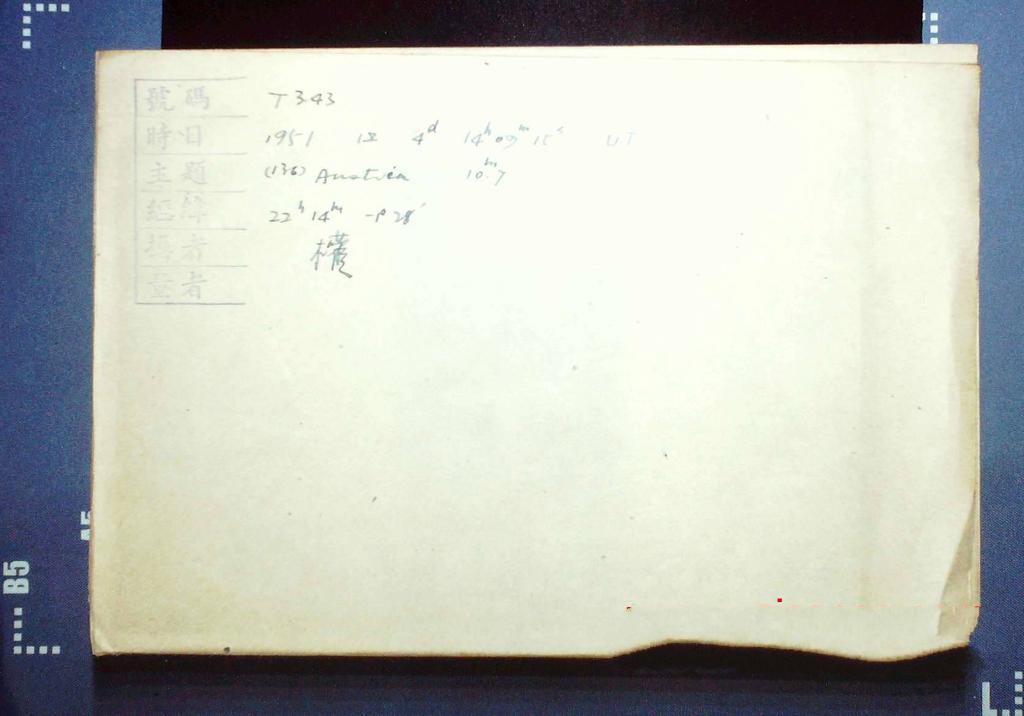 號碼 T343
時日 1951 IX 4d 14h 09m 15s UT
主題 (136) Austria 10.m7
經緯 22h 14m
攝者 權
量者
A5
B5